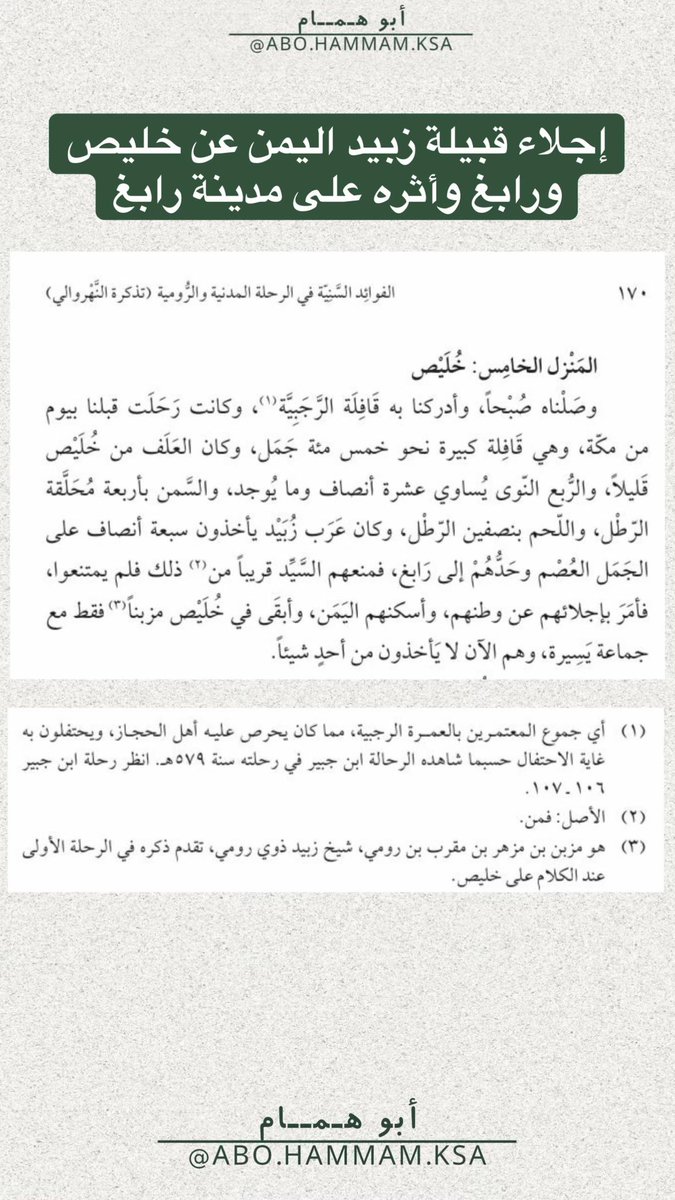 أبو هـمــام
@ABO.HAMMAM.KSA
إجلاء قبيلة زبيد اليمن عن خليص
ورابغ وأثره على مدينة رابغ
١٧٠ الفوائد السَّنِيَّة في الرحلة المدنية والرُّومية (تذكرة النَّهْروالي)
المَنْزل الخامِس: خُلَيْص
وصَلْناه صُبْحاً، وأدركنا به قَافِلَة الرَّجَبِيَّة(١)، وكانت رَحَلَت قبلنا بيوم
من مكّة، وهي قَافِلة كبيرة نحو خمس مئة جَمَل، وكان العَلَف من خُلَيْص
قَليلاً، والرُّبع النّوى يُساوي عشرة أنصاف وما يُوجد، والسَّمن بأربعة مُحَلَّقة
الرّطْل، واللّحم بنصفين الرّطْل، وكان عَرَب زُبَيْد يأخذون سبعة أنصاف على
الجَمَل العُصْم وحَدُّهُمْ إلى رَابغ، فمنعهم السَّيِّد قريباً من(٢) ذلك فلم يمتنعوا،
فأمَرَ بإجلائهم عن وطنهم، وأسكنهم اليَمَن، وأبقَى في خُلَيْص مزبناً(٣) فقط مع
جماعة يَسِيرة، وهم الآن لا يَأخذون من أحدٍ شيئاً.
(١) أي جموع المعتمرين بالعمرة الرجبية، مما كان يحرص عليه أهل الحجاز، ويحتفلون به
غاية الاحتفال حسبما شاهده الرحالة ابن جبير في رحلته سنة ٥٧٩هـ. انظر رحلة ابن جبير
١٠٦ـ١٠٧.
(٢) الأصل: فمن.
(٣) هو مزبن بن مزهر بن مقرب بن رومي، شيخ زبيد ذوي رومي، تقدم ذكره في الرحلة الأولى
عند الكلام على خليص.
أبو هـمــام
@ABO.HAMMAM.KSA